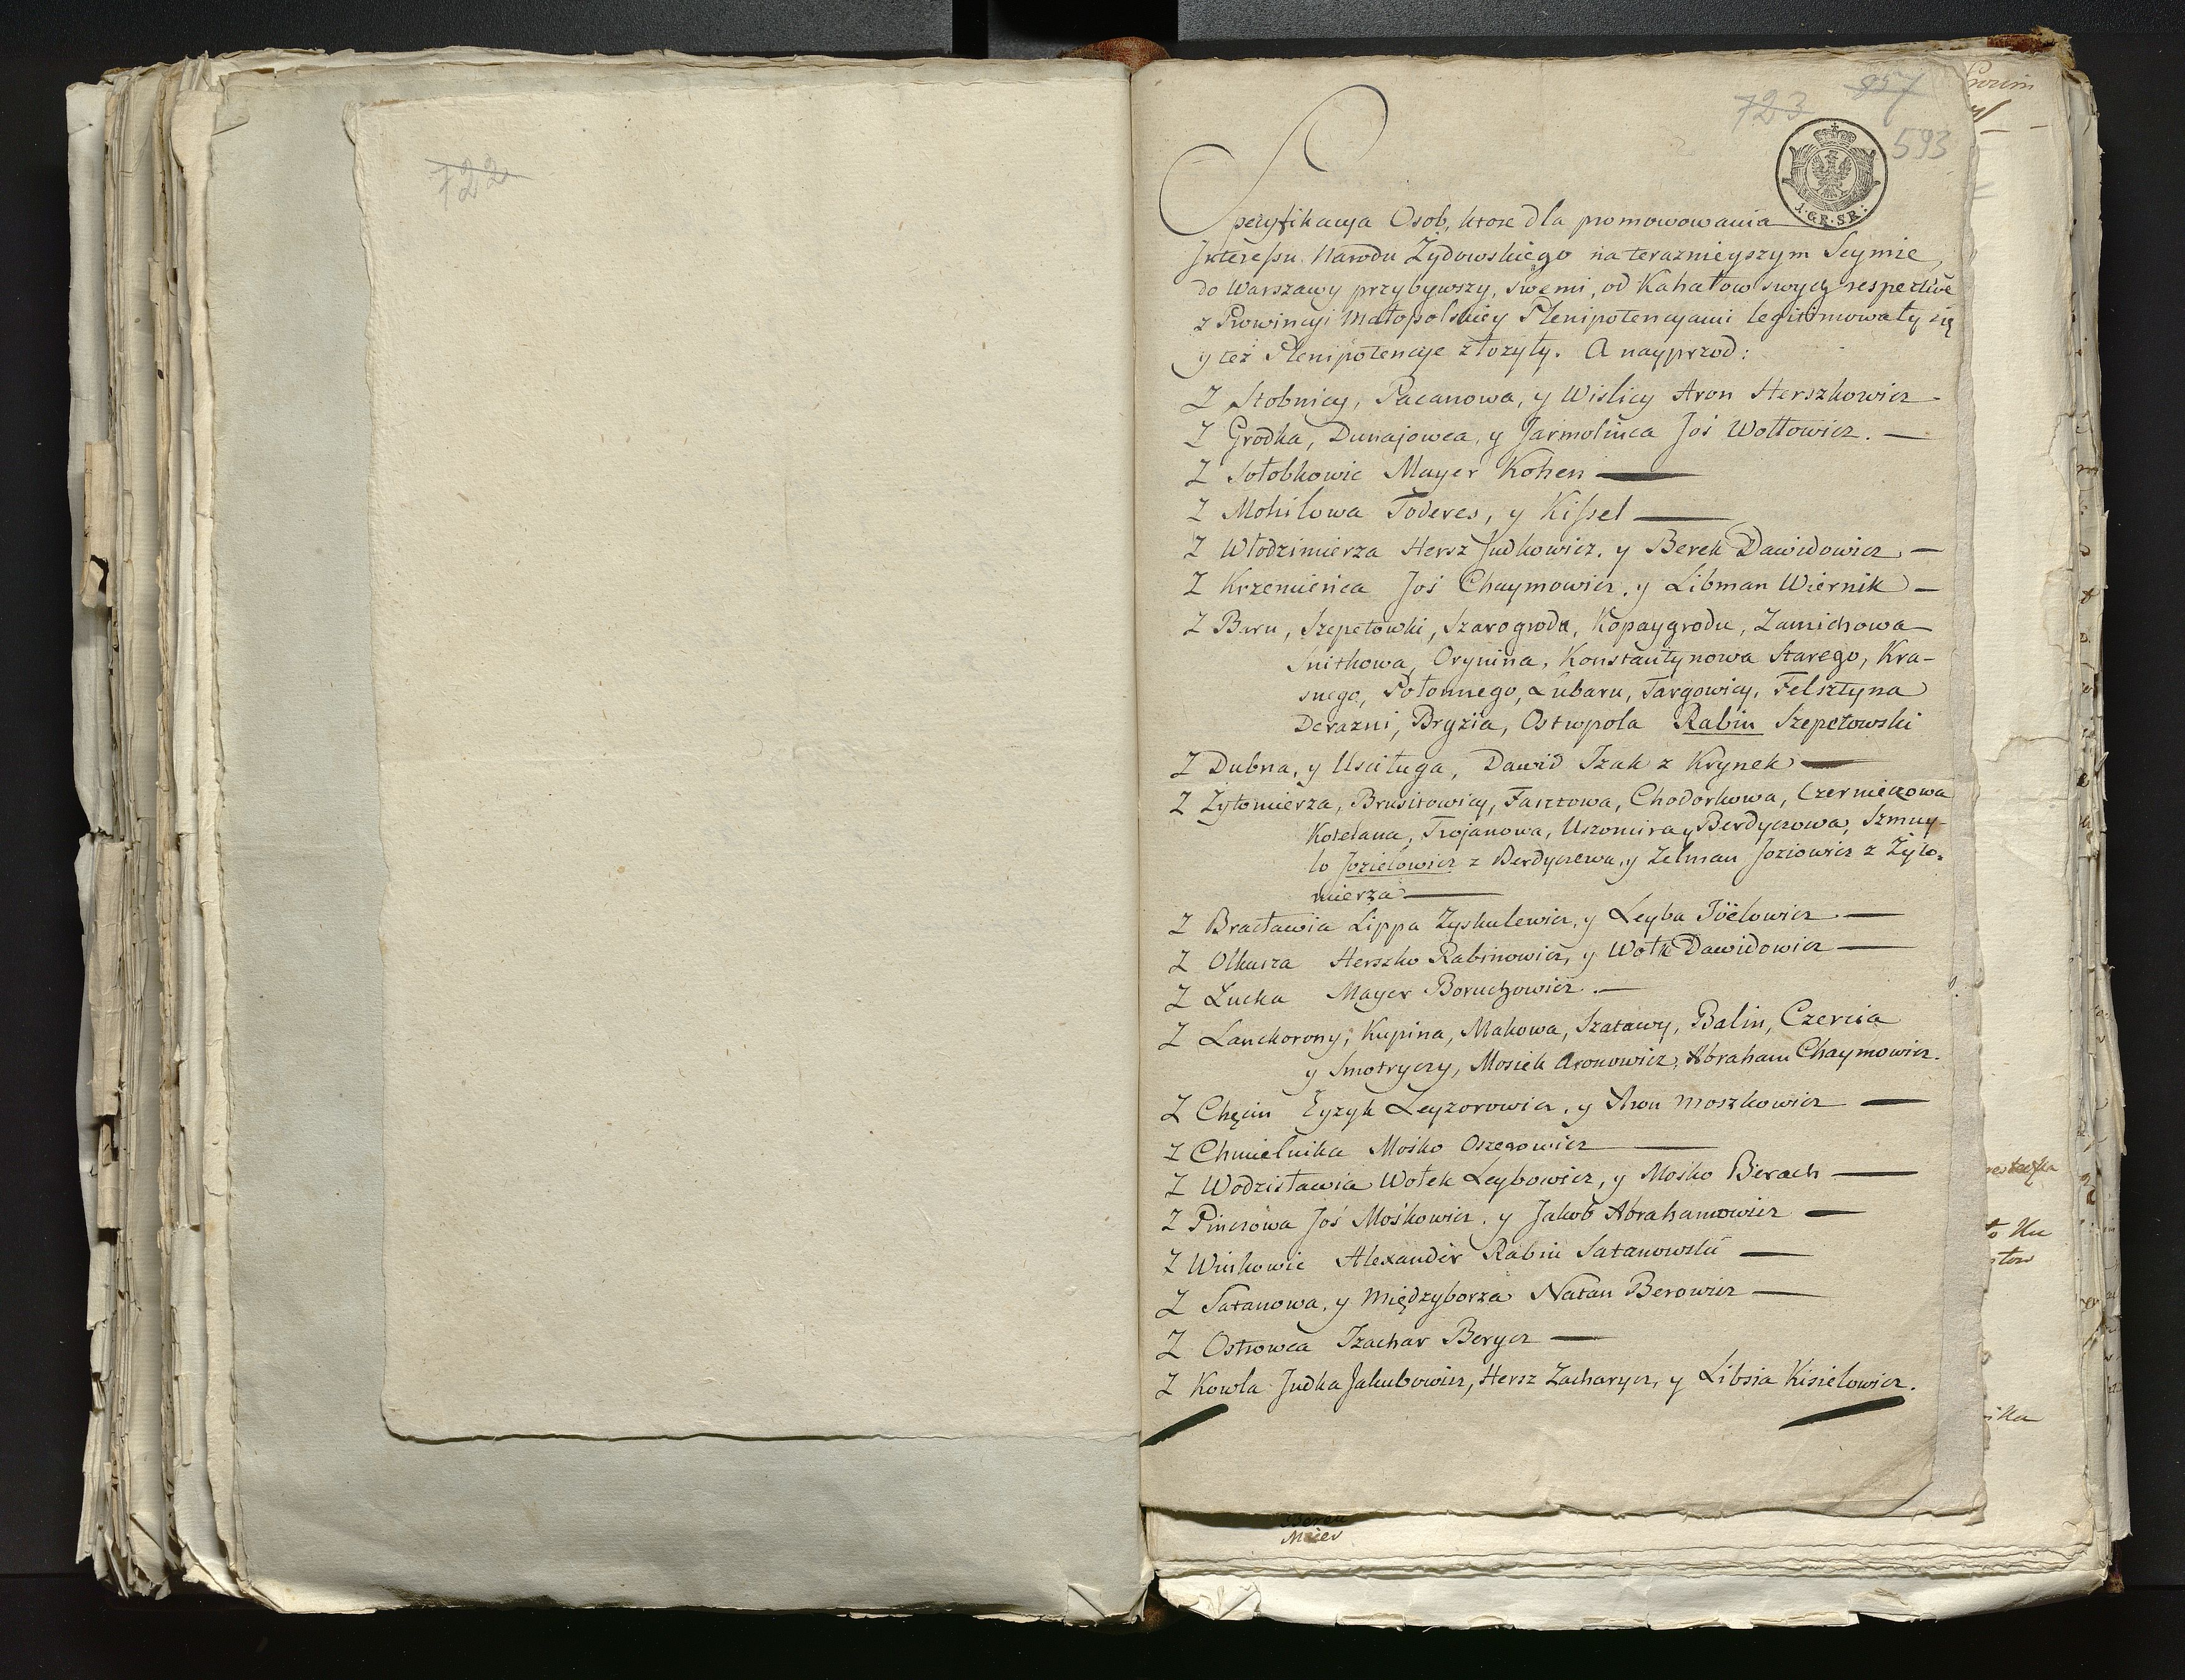 722
723
857
593
J. GR. SR:
Specyfikacya Osob, ktore dla promowowania
Interessu Narodu Żydowskiego na teraznieyszym Seymie,
do Warszawy przybywszy, swemi, od Kahałow swych respective
z Prowincyi Małopolskiey Plenipotencyami legitimowały się
y też Plenipotencye złożyły. A nayprzod:
Z Stobnicy, Pacanowa, y Wislicy Aron Herszkowicz —
Z Grodka, Dunajowca, y Jarmolinca Joś Wolfowicz. —
Z Sołobkowic Mayer Kohen —
Z Mohilowa Toderes, y Kissel —
Z Włodzimierza Hersz Judkowicz, y Berek Dawidowicz —
Z Krzemieńca Joś Chaymowicz, y Libman Wiernik —
Z Baru, Szepetowki, Szarogroda, Kopaygrodu, Zamichowa
Snitkowa, Orynina, Konstantynowa Starego, Kra-
snego, Połonnego, Lubaru, Targowicy, Felsztyna
Derazni, Bryzia, Ostropola Rabin Szepetowski
Z Dubna, y Usciługa, Dawid Izak z Krynek —
Z Żytomierza, Brusiłowicy, Fastowa, Chodorkowa, Czerniechowa
Kotelana, Trojanowa, Uszomira y Berdyczowa, Szmuy-
lo Jozielowicz z Berdyczewa, y Zelman Joziowicz z Żyto-
mierza —
Z Bracławia Lippa Zyskulewicz, y Leyba Jöelowicz —
Z Olkusza Herszko Rabinowicz, y Wolf Dawidowicz —
Z Łucka Mayer Boruchowicz —
Z Lanckorony, Kupina, Makowa, Szatawy, Balin, Czercza
y Smotryczy, Mosiek Aronowicz, Abraham Chaymowicz.
Z Chęcin Eyzyk Leyzorowicz, y Aron Moszkowicz —
Z Chmielnika Mośko Oszerowicz —
Z Wodzisławia Wołek Leybowicz, y Mośko Berach —
Z Pinczowa Joś Mośkowicz, y Jakob Abrahamowicz —
Z Winkowic Alexander Rabin Satanowski —
Z Satanowa, y Międzyborza Natan Berowicz —
Z Ostrowca Izachar Berycz —
Z Kowla Judka Jakubowicz, Hersz Zacharycz, y Libsia Kisielowicz.
Berek
Maier